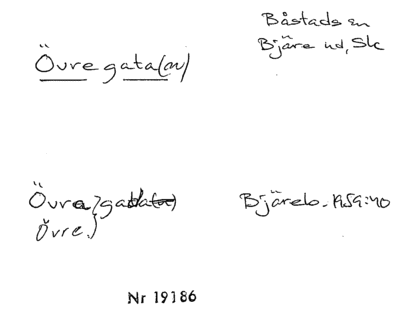 Båstads sn
Bjäre hd, Sk
Övre gata(n)
Övra} gatla
Övre}
Bjäreb. 1959:40
Nr 19186